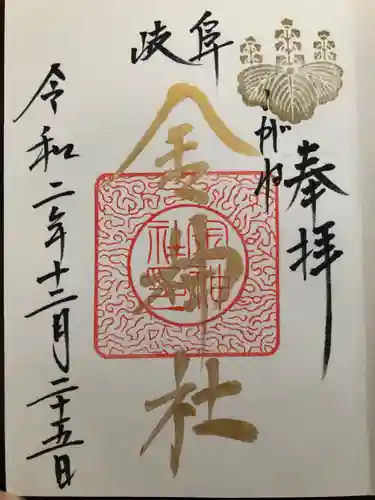 奉拝
こがね
岐阜
金神社
令和二年十二月二十五日